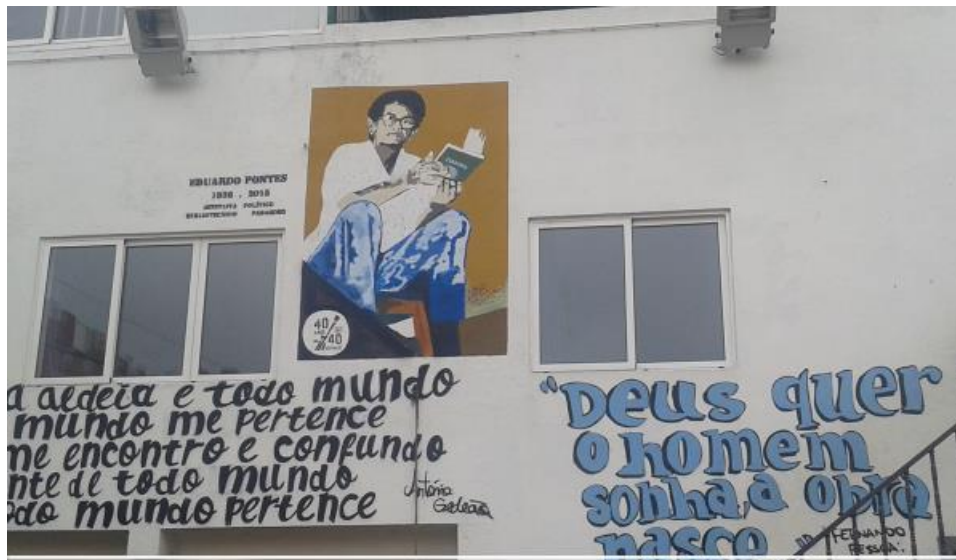 EDUARDO PONTES
ACTIVISTA POLÍTICO
40
40
a aldeia é todo mundo
mundo me pertence
me encontro e confundo
nte de todo mundo
odo mundo pertence
António
Gedeão
"Deus quer
o homem
sonha, a obra
nasce
FERNANDO
PESSOA.